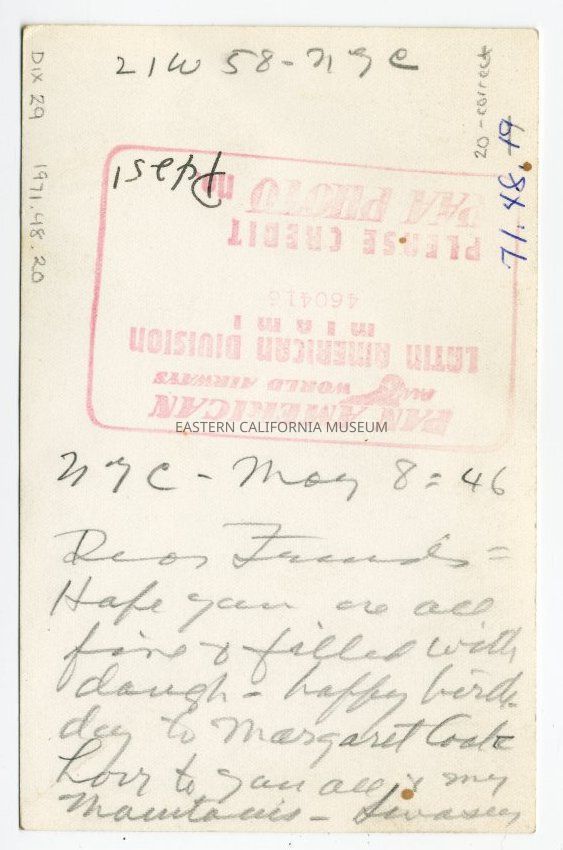 21W 58 - NYC
20 - correct
DIX 29 1971.48.20
71.48.19
Pdasi
PAN AMERICAN
WORLD AIRWAYS
LATIN AMERICAN DIVISION
MIAMI
460416
PLEASE CREDIT
PAA PHOTO no
EASTERN CALIFORNIA MUSEUM
NYC - May 8 = 46
Dear Friends =
Hope you are all
fine & filled with
dough - happy birth
day to Margaret Cook
Love to you all & my
Mountains - Swasey